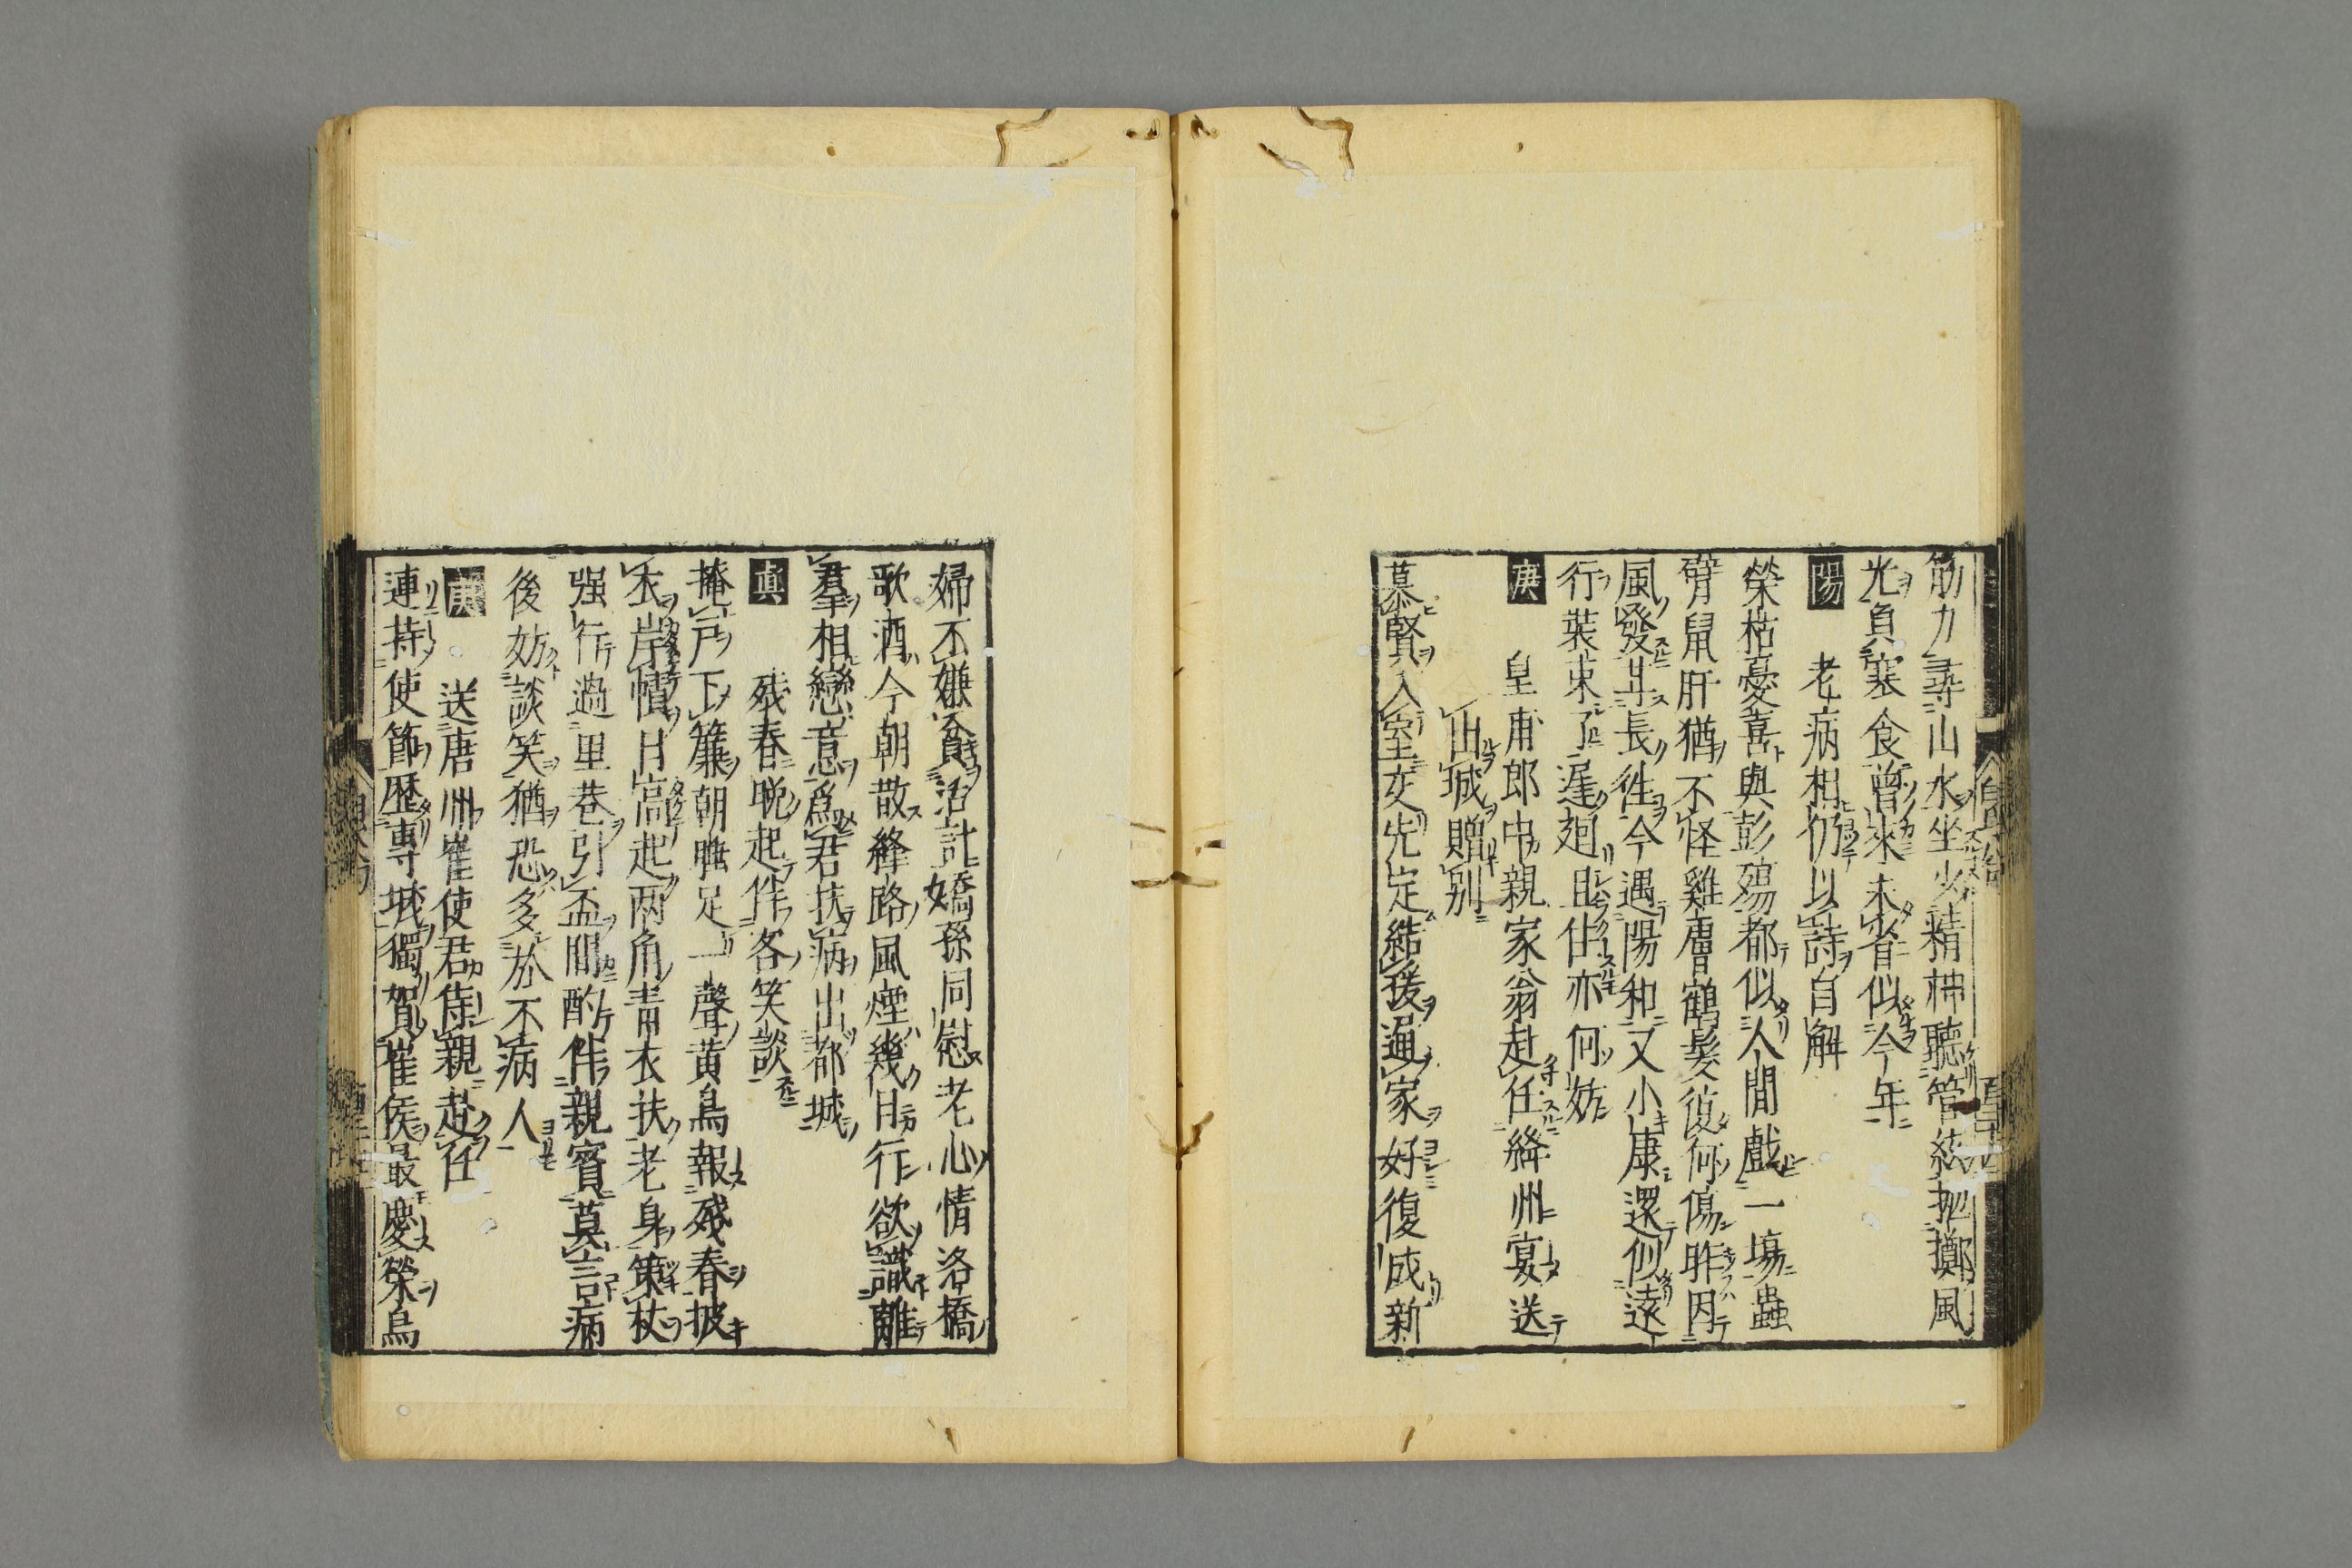 筋力尋山水坐少精神聽管絃拋擲風
光負寒食曾來未省似今年
陽　老病相仍以詩自解
榮枯憂喜與彭殤都似人間戲一場蟲
臂鼠肝猶不怪雞膚鶴髮復何傷昨因
風發甘長徃今遇陽和又小康還似遠
行裝束了遲廻且住亦何妨
庚　皇甫郎中親家翁赴任絳州宴送
出城贈别
慕賢入室交先定結援通家好復成新
婦不嫌貧活計嬌孫同慰老心情洛橋
歌酒今朝散絳路風煙幾日行欲識離
羣相戀意爲君扶病出都城
真　殘春晩起伴客笑談
掩戸下簾朝睡足一聲黄鳥報殘春披
衣岸幘日高起兩角青衣扶老身策杖
强行過里巷引盃閒酌伴親賓莫言病
後妨談笑猶恐多於不病人
庚　送唐州崔使君侍親赴任
連持使節歴專城獨賀崔侯最慶榮烏